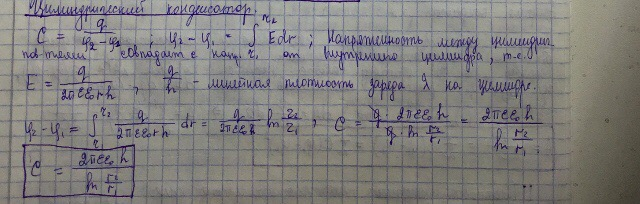 Цилиндрический конденсатор.
C = q / (φ₂ - φ₁) ; φ₂ - φ₁ = ∫_{r₁}^{r₂} Edr ; Напряженность между цилиндрич.
пов-тями совпадает с напр. от внутреннего цилиндра, т.е.
E = q / (2πεε₀rh) , q/h - линейная плотность заряда λ на цилиндре.
φ₂ - φ₁ = ∫_{r₁}^{r₂} q / (2πεε₀rh) dr = q / (2πεε₀h) ln r₂/r₁ ; C = q · 2πεε₀h / (q · ln r₂/r₁) = 2πεε₀h / (ln r₂/r₁) ;
C = 2πεε₀h / (ln r₂/r₁)